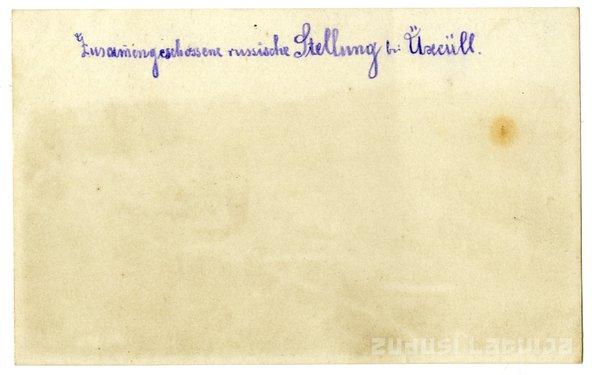 Zusam̄engeschossene russische Stellung bei Üxcüll.
zudusi Latvija